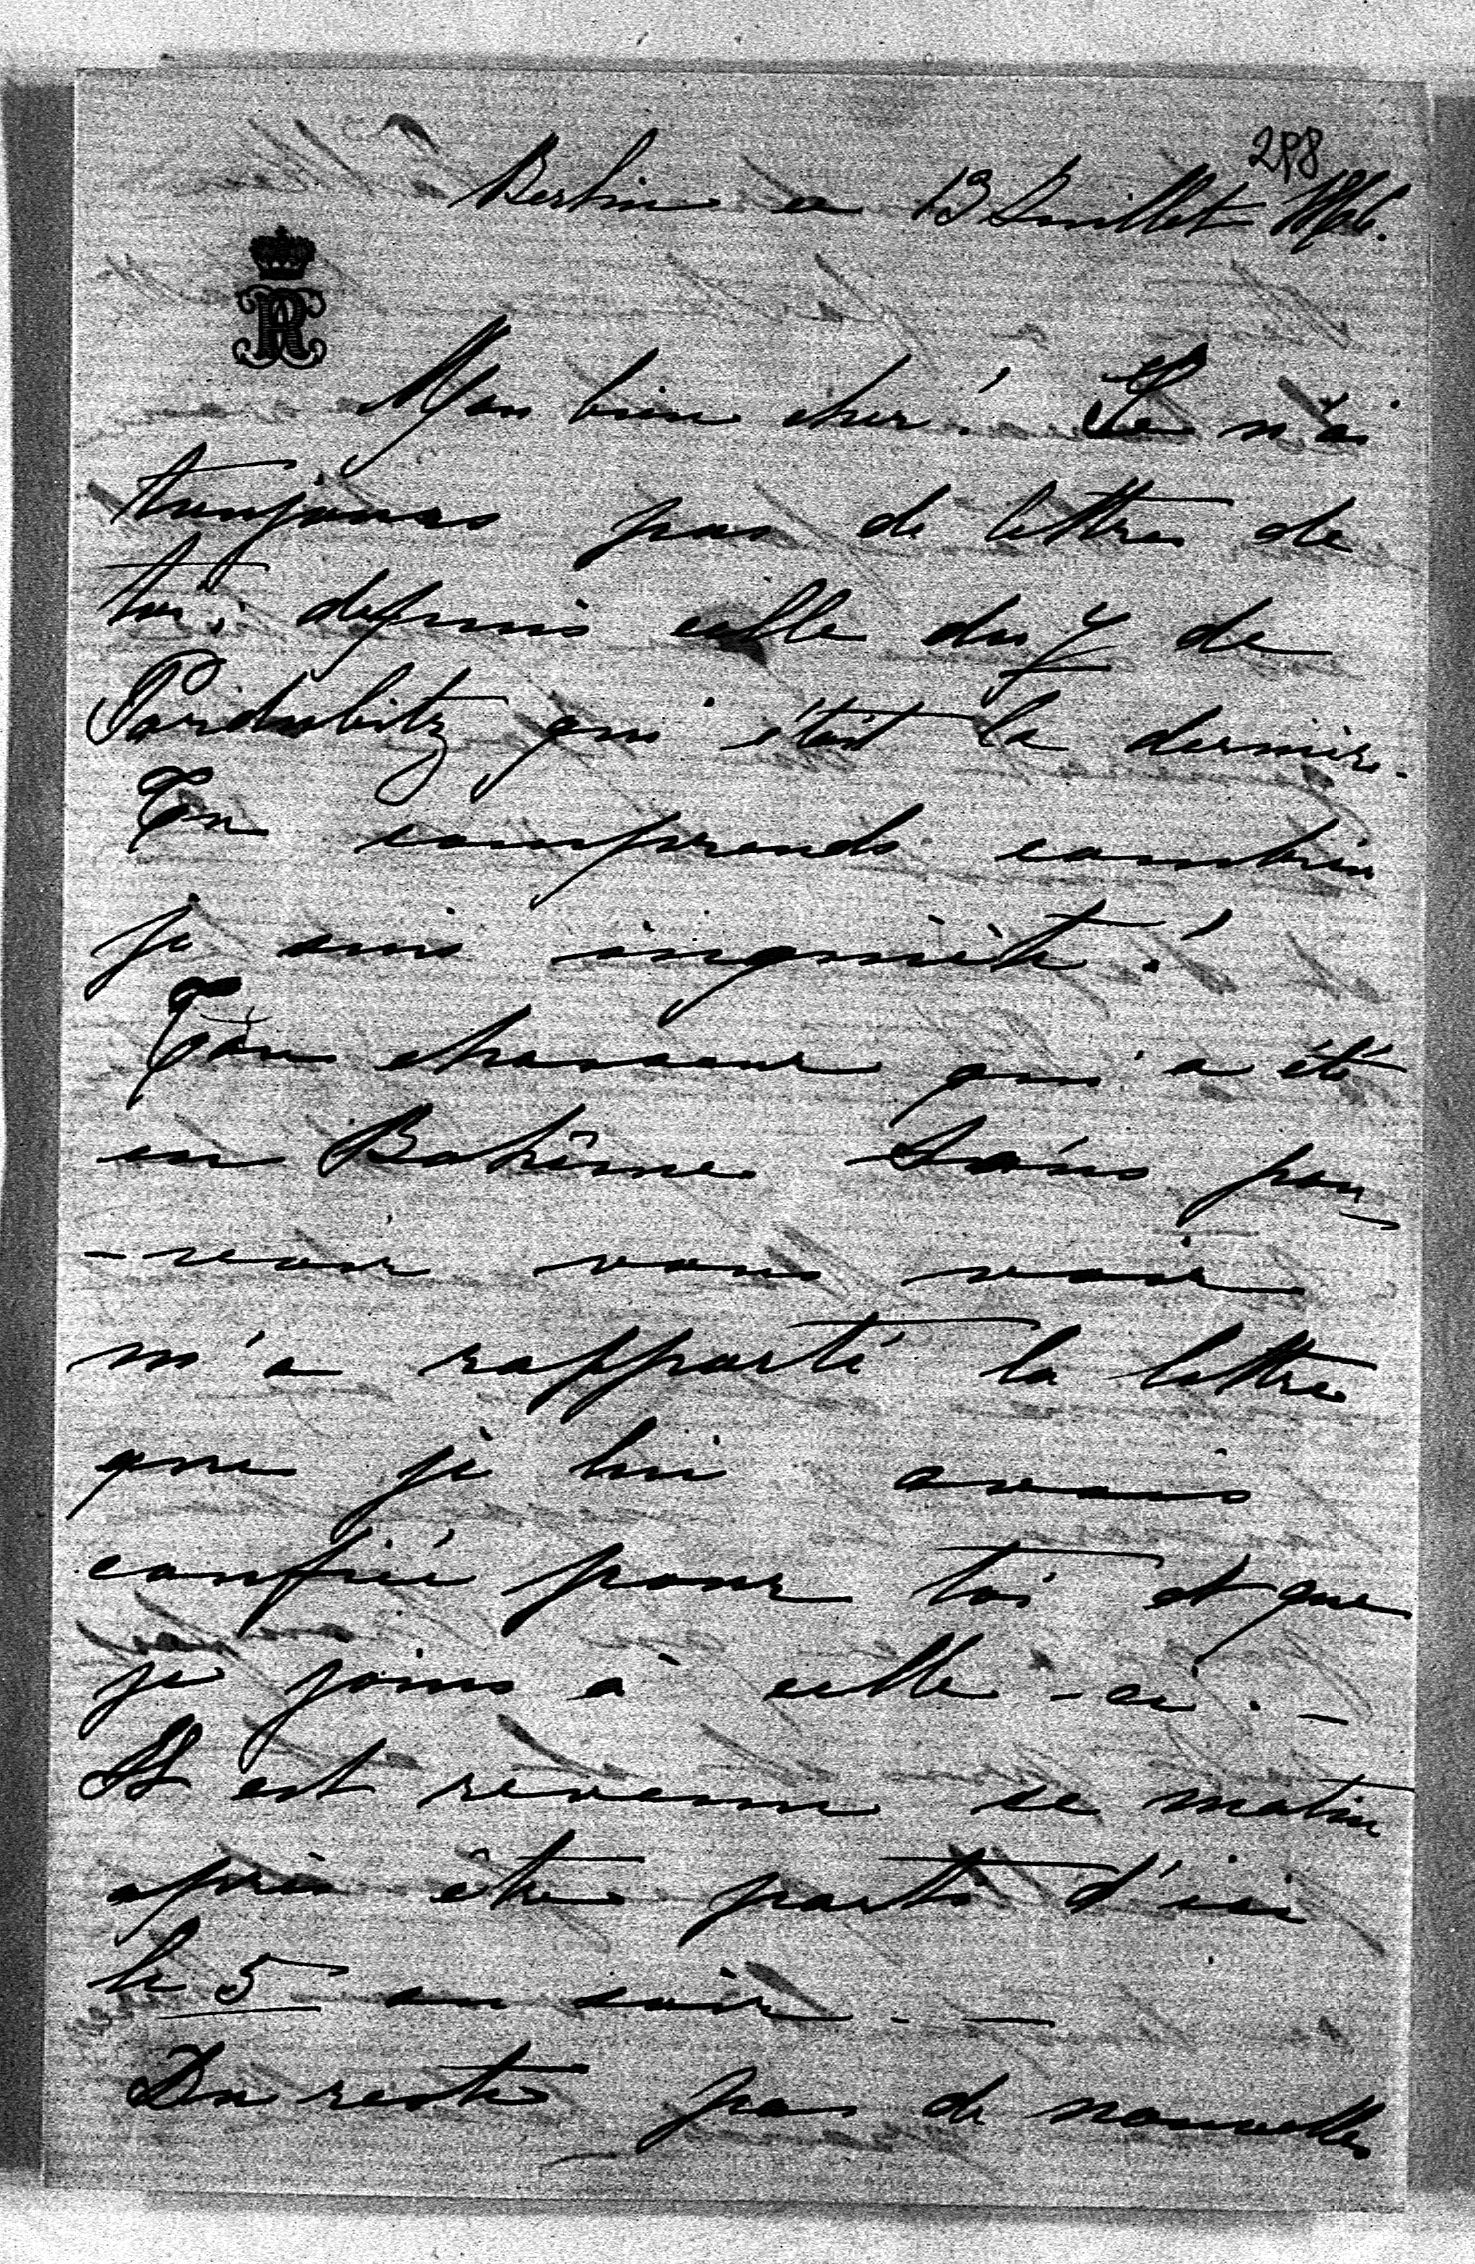 298
Berlin ce 13 Juillet 1866.
Mon bien cher! Je n'ai
toujours pas de lettres de
toi, depuis celle du 7 de
Pardubitz qui était la dernière.
Tu comprends combien
je suis inquiète!
Ton chasseur qui a été
en Bohême sans pou-
-voir vous voir
m'a rapporté la lettre
que je lui avais
confiée pour toi et que
je joins à celle-ci. —
Il est revenu ce matin
après être parti d'ici
le 5 au soir. —
Du reste pas de nouvelles